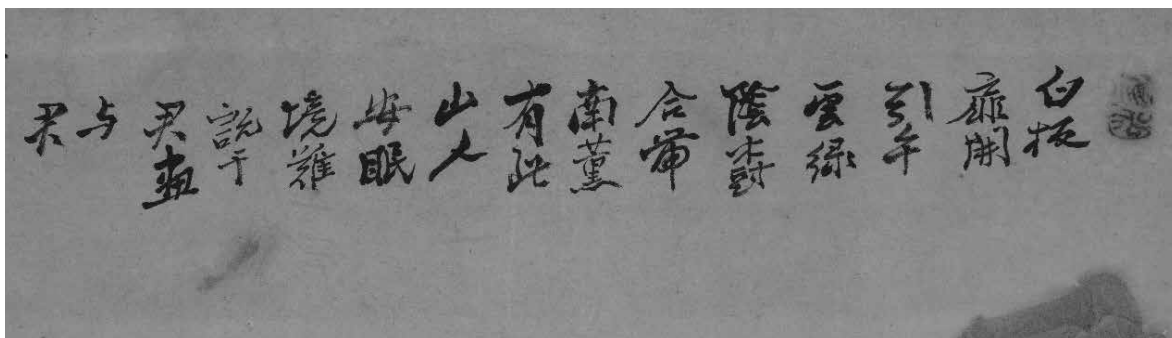 白板
扉開
引午
雲綠
陰樹
合帶
南薰
有此
山人
安眠
境難
說于
君畫
与
君